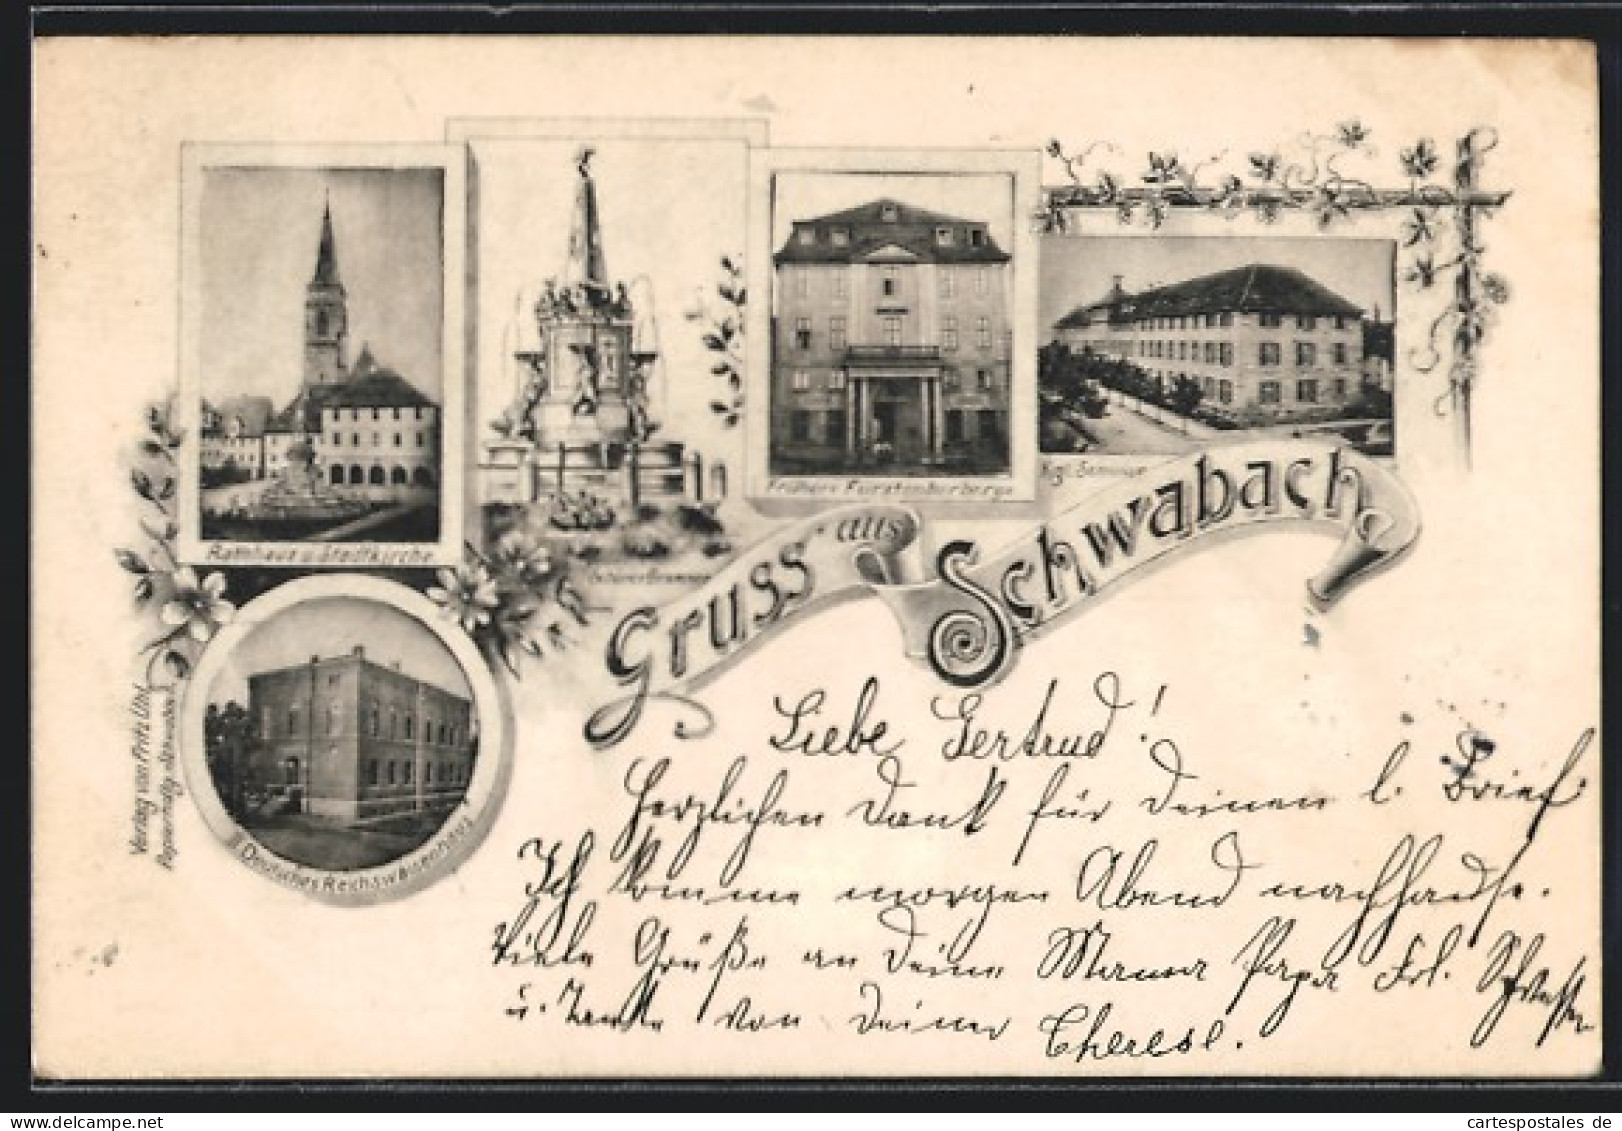 Rathhaus u. Stadtkirche
Schöner Brunnen
Frühere Fürstenherberge
Kgl. Seminar
Gruss aus Schwabach
II. Deutsches Reichswaisenhaus
Verlag von Fritz Uhl,
Papierhdlg. Schwabach
Liebe Gertrud!
Herzlichen Dank für Deinen l. Brief.
Ich komme morgen Abend nachhause.
Viele Grüße an Deine Mama Papa Frl. Schwester
u. Tante von Deiner
Therese.
cartespostales de